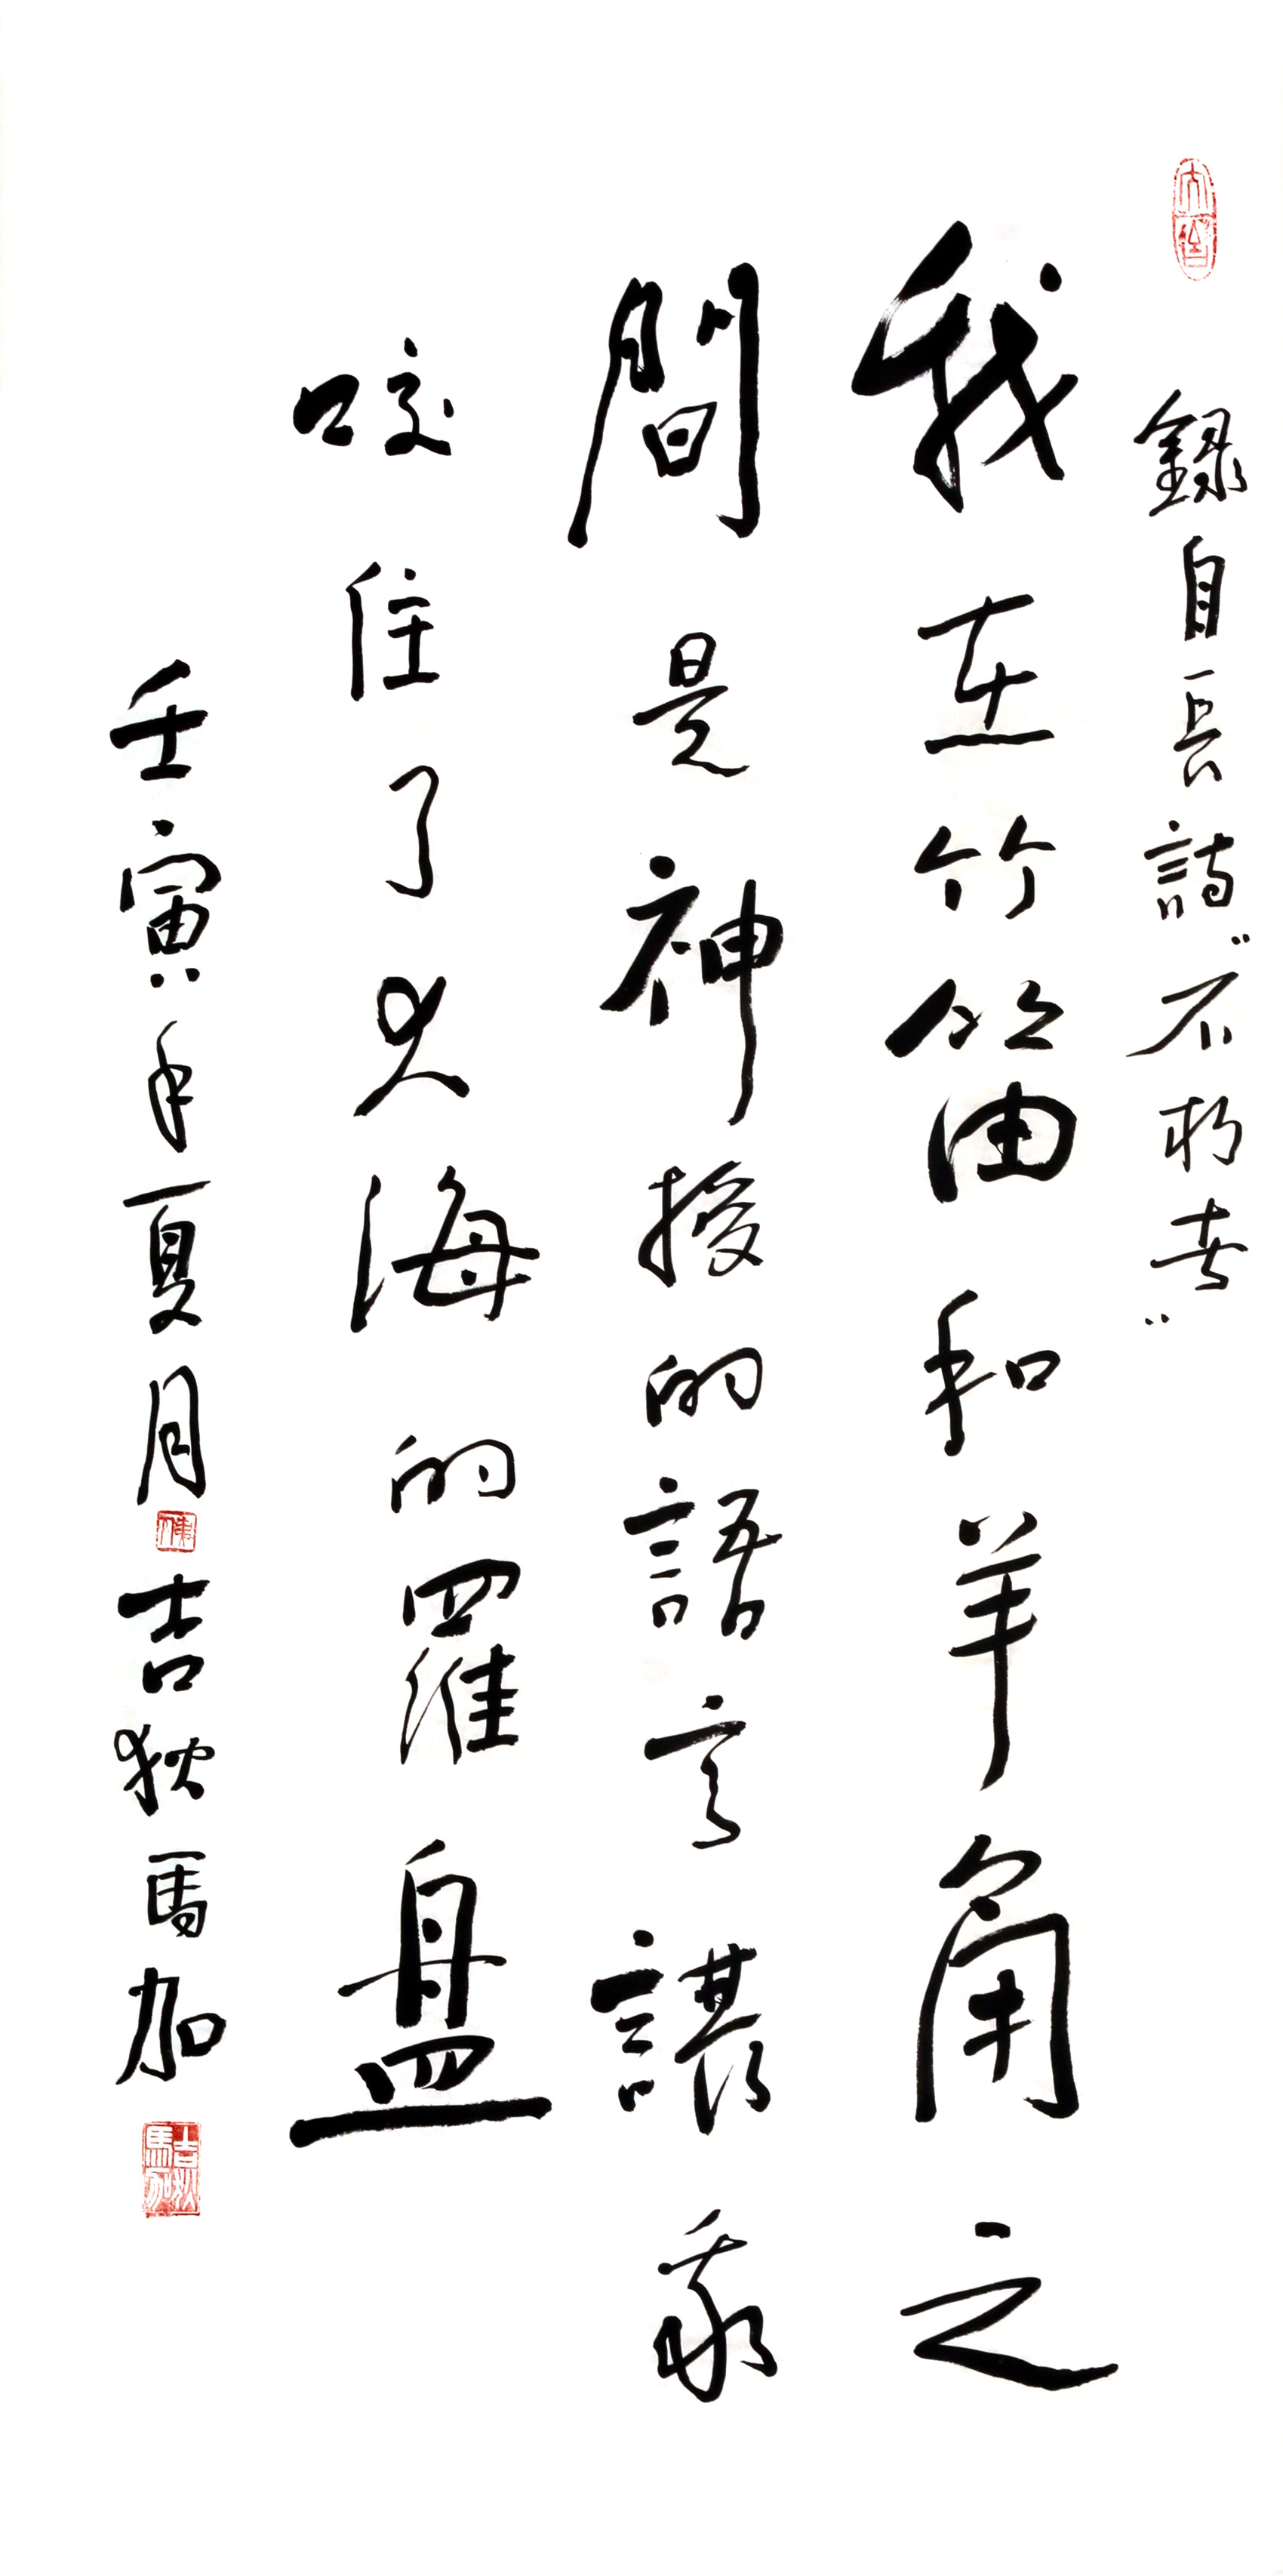 錄自長詩"不朽者"
我在竹笛和羊角之
間是神授的語言讓我
咬住了大海的羅盤
壬寅年夏月
吉狄馬加
吉狄馬加